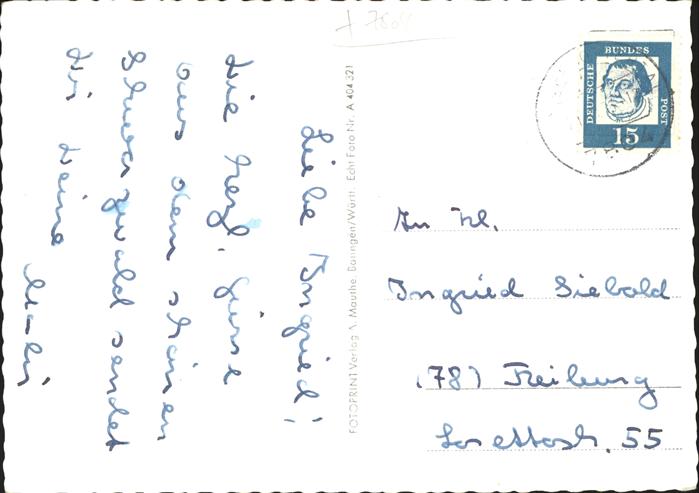 Liebe Ingried!
Die herzl. Grüsse
aus dem schönen
Schwarzwald sendet
Dir Deine
FOTOPRINT Verlag A. Mauthe, Balingen/Württ. Echt Foto Nr. A 404 321
DEUTSCHE
BUNDES
POST
15
An Kl.
Ingried Siebold
(78) Freiburg
Lorettostr. 55